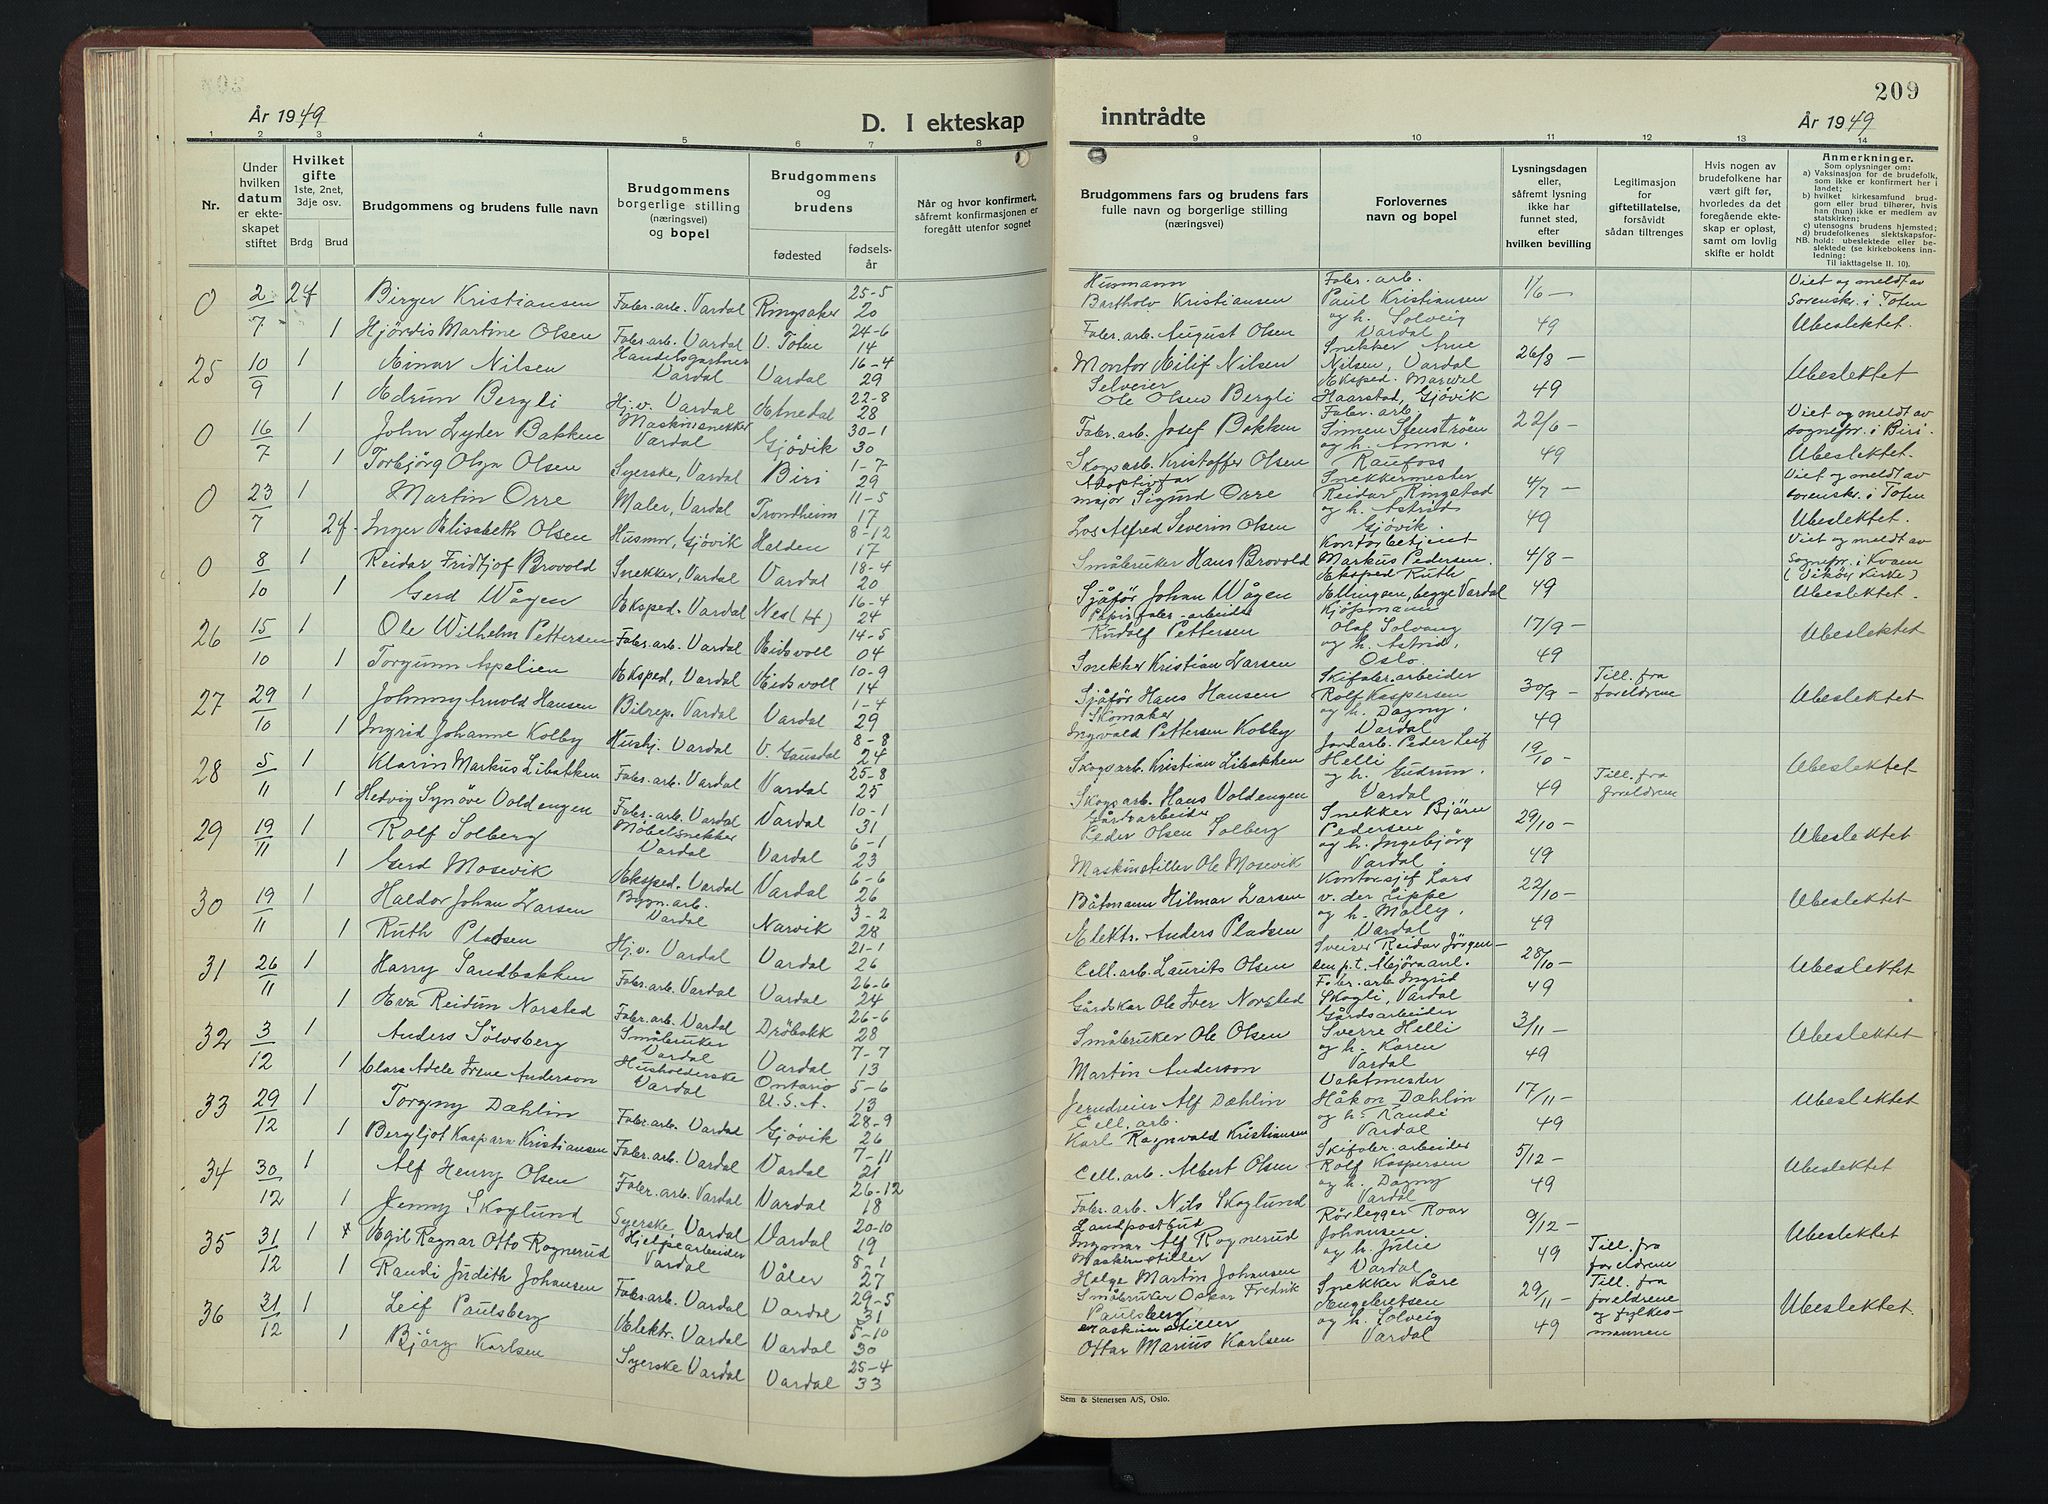 År 1949
D. I ekteskap
1 2 3 4 5 6 7 8
Nr.
Under hvilken datum er ekteskapet stiftet
Hvilket gifte
1ste, 2net, 3dje osv.
Brdg Brud
Brudgommens og brudens fulle navn
Brudgommens borgerlige stilling (næringsvei) og bopel
Brudgommens og brudens
fødested
fødselsår
Når og hvor konfirmert, såfremt konfirmasjonen er foregått utenfor sognet
0 2/7 2g Birger Kristiansen Fabr.arb. Vardal Ringsaker 25-5 20
1 Hjördis Martine Olsen Fabr.arb. Vardal V. Toten 24-6 14
25 10/9 1 Einar Nilsen Handelsgartner Vardal Vardal 16-4 29
1 Edrun Bergli Hj.v. Vardal Etnedal 22-8 28
0 16/7 1 John Lyder Bakken Maskinsnekker Vardal Gjøvik 30-1 30
1 Torbjörg Olga Olsen Syerske, Vardal Biri 1-7 29
0 23/7 1 Martin Orre Maler, Vardal Trondheim 11-5 17
2g. Inger Elisabeth Olsen Husmor, Gjøvik Halden 8-12 17
0 8/10 1 Reidar Fridtjof Brovold Snekker, Vardal Vardal 18-4 20
1 Gerd Wågen Eksped. Vardal Nes (H) 16-4 24
26 15/10 1 Ole Wilhelm Pettersen Fabr.arb. Vardal Eidsvoll 14-5 04
1 Torgunn Aspelien Eksped, Vardal Eidsvoll 10-9 14
27 29/10 1 Johnny Arnold Hansen Bilrep. Vardal Vardal 1-4 29
1 Ingrid Johanne Kolby Hushj. Vardal V. Gausdal 8-8 24
28 5/11 1 Klarin Markus Libakken Fabr.arb. Vardal Vardal 25-8 25
1 Hedvig Synöve Voldengen Fabr.arb. Vardal Vardal 10-1 31
29 19/11 1 Rolf Solberg Möbelsnekker Vardal Vardal 6-1 23
1 Gerd Mosevik Eksped. Vardal Vardal 6-6 26
30 19/11 1 Haldor Johan Larsen Bygn.arb. Vardal Narvik 3-2 28
1 Ruth Pladsen Hj.v. Vardal Vardal 21-1 26
31 26/11 1 Harry Sandbakken Fabr.arb. Vardal Vardal 26-6 24
1 Eva Reidun Norsted Fabr.arb. Vardal Dröbakk 26-6 28
32 3/12 1 Anders Sölvsberg Småbruker Vardal Vardal 7-7 13
1 Clara Adele Irene Anderson Husholderske Vardal Ontario U.S.A. 5-6 13
33 29/12 1 Torgny Dæhlin Fabr.arb. Vardal Gjøvik 28-9 26
1 Bergljot Kaspara Kristiansen Fabr.arb. Vardal Vardal 7-11 21
34 30/12 1 Alf Henry Olsen Fabr.arb. Vardal Vardal 26-12 18
1 Jenny Skoglund Syerske, Vardal Vardal 20-10 19
35 31/12 1 Egil Ragnar Otto Rognerud Hjelpearbeider Vardal Våler 8-1 27
1 Randi Judith Johansen Fabr.arb. Vardal Vardal 29-5 31
36 31/12 1 Leif Paulsberg Elektr. Vardal Vardal 5-10 30
1 Björg Karlsen Syerske Vardal Vardal 25-4 33
209
inntrådte
År 1949
9 10 11 12 13 14
Brudgommens fars og brudens fars fulle navn og borgerlige stilling (næringsvei)
Forlovernes navn og bopel
Lysningsdagen eller, såfremt lysning ikke har funnet sted, efter hvilken bevilling
Legitimasjon for giftetillatelse, forsåvidt sådan tiltrenges
Hvis nogen av brudefolkene har vært gift før, hvorledes da det foregående ekteskap er opløst, samt om lovlig skifte er holdt
Anmerkninger.
Som oplysninger om:
a) Vaksinasjon for de brudefolk, som ikke er konfirmert her i landet;
b) hvilket kirkesamfund brudgom eller brud tilhører, hvis han (hun) ikke er medlem av statskirken;
c) utensogns brudens hjemsted;
d) brudefolkenes slektskapsforhold: ubeslektede eller beslektede (se kirkebokens innledning:
NB.
Til iakttagelse II. 10).
Husmann Bartholv Kristiansen Fabr.arb. Paul Kristiansen og h. Solveig Vardal 1/6 - 49 Viet og meldt av Sorenskr. i Toten Ubeslektet.
Fabr.arb. August Olsen
Montør Eilif Nilsen Snekker Arne Nilsen, Vardal 26/8 - 49 Ubeslektet
Selveier Ole Olsen Bergli Eksped. Marwel Haarstad, Gjövik
Fabr.arb. Josef Bakken Fabr.arb. Simen Stenströen og h. Anna. Raufoss 22/6 - 49 Viet og meldt av sognepr. i Biri. Ubeslektet.
Skogsarb. Kristoffer Olsen
Adoptivfar major Sigurd Orre Snekkermester Reidar Ringstad og h. Astrid Gjövik. 4/7 - 49 Viet og meldt av sorenskr. i Toten Ubeslektet.
Los Alfred Severin Olsen
Småbruker Hans Brovold Kontorbetjent Markus Pedersen. 4/8 - 49 Viet og meldt av Sognepr. i Kvam (Viköy Kirke) Ubeslektet.
Sjåför Johan Wågen Eksped Ruth Ellingsen, begge Vardal
Papirfabr.-arbeider Rudolf Pettersen Kjöpmann Olaf Solvang og h. Astrid, Oslo. 17/9 - 49 Ubeslektet
Snekker Kristian Larsen
Sjåför Hans Hansen Skifabr.arbeider Rolf Kaspersen og h. Dagny. Vardal 30/9 - 49 Till. fra foreldrene Ubeslektet
Skomaker Ingvald Pettersen Kolby
Skogsarb. Kristian Libakken Jordarb. Peder Leif Helli og h. Gudrun. Vardal 19/10 - 49 Till. fra foreldrene Ubeslektet
Skogsarb. Hans Voldengen
Gårdsarbeider Peder Olsen Solberg Snekker Björn Pedersen og h. Ingebjörg Vardal. 29/10 - 49 Ubeslektet
Maskinstiller Ole Mosevik
Båtmann Hilmar Larsen Kontorsjef Lars v. der Lippe og h. Molly, Vardal 22/10 - 49 Ubeslektet
Elektr. Anders Pladsen
Cell.arb. Laurits Olsen Sveiser Reidar Jörgensen p.t. Mjöra anl. 28/10 - 49 Ubeslektet
Gårdskar Ole Iver Norsted Fabr.arb Ingrid Skogli, Vardal
Småbruker Ole Olsen Gårdsarbeider Sverre Helli og h. Karen Vardal 3/11 - 49 Ubeslektet
Martin Anderson
Jerndreier Alf Dæhlin Vaktmester Håkon Dæhlin og h. Randi Vardal 17/11 - 49 Ubeslektet
Cell.arb. Karl Ragnvald Kristiansen
Cell.arb. Albert Olsen Skifabr.arbeider Rolf Kaspersen og h. Dagny Vardal 5/12 - 49 Ubeslektet
Fabr.arb. Nils Skoglund
Landpostbud Ingvar Alf Rognerud Rörlegger Roar Johansen og h. Julie Vardal 9/12 - 49 Till. fra foreldrene Ubeslektet
Maskinstiller Helge Martin Johansen
Småbruker Oskar Fredrik Paulsberg Snekker Kåre Engebretsen og h. Solveig Vardal 29/11 - 49 Till. fra foreldrene og fylkesmannen Ubeslektet.
Maskinstiller Ottar Marius Karlsen
Sem & Stenersen A/S, Oslo.